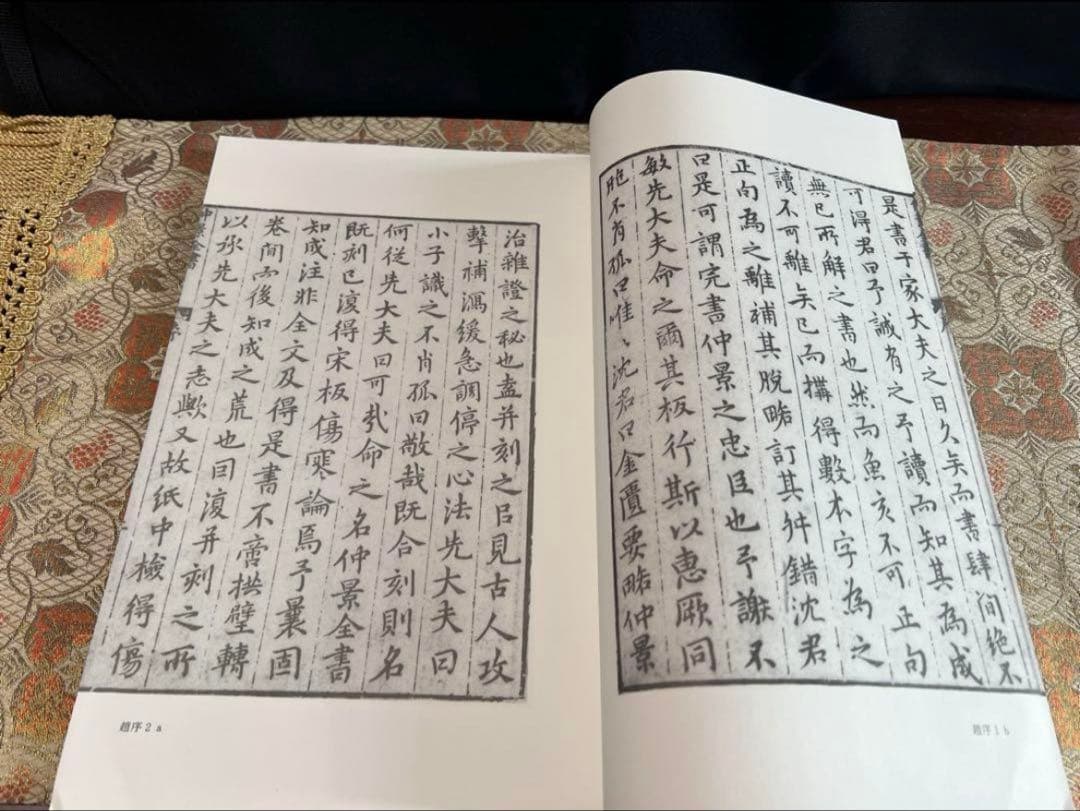 是書于家大夫之日久矣而書肆間絶不
可得君曰予誠有之予讀而知其為成
無已所解之書也然而魚亥不可正句
讀不可離矣已而搆得數本字為之
正句為之離補其脫畧訂其舛錯沈君
曰是可謂完書仲景之忠臣也予謝不
敏先大夫命之爾其板行斯以惠厥同
胞不肖孤曰唯〻沈君曰金匱要畧仲景
趙序1b
治雜證之秘也盍并刻之以見古人攻
擊補瀉緩急調停之心法先大夫曰
小子識之不肖孤曰敬哉既合刻則名
何從先大夫曰可哉命之名仲景全書
既刻已復得宋板傷寒論焉予曩固
知成注非全文及得是書不啻拱璧轉
卷間而後知成之荒也因復并刻之所
以承先大夫之志歟又故紙中檢得傷
趙序2a